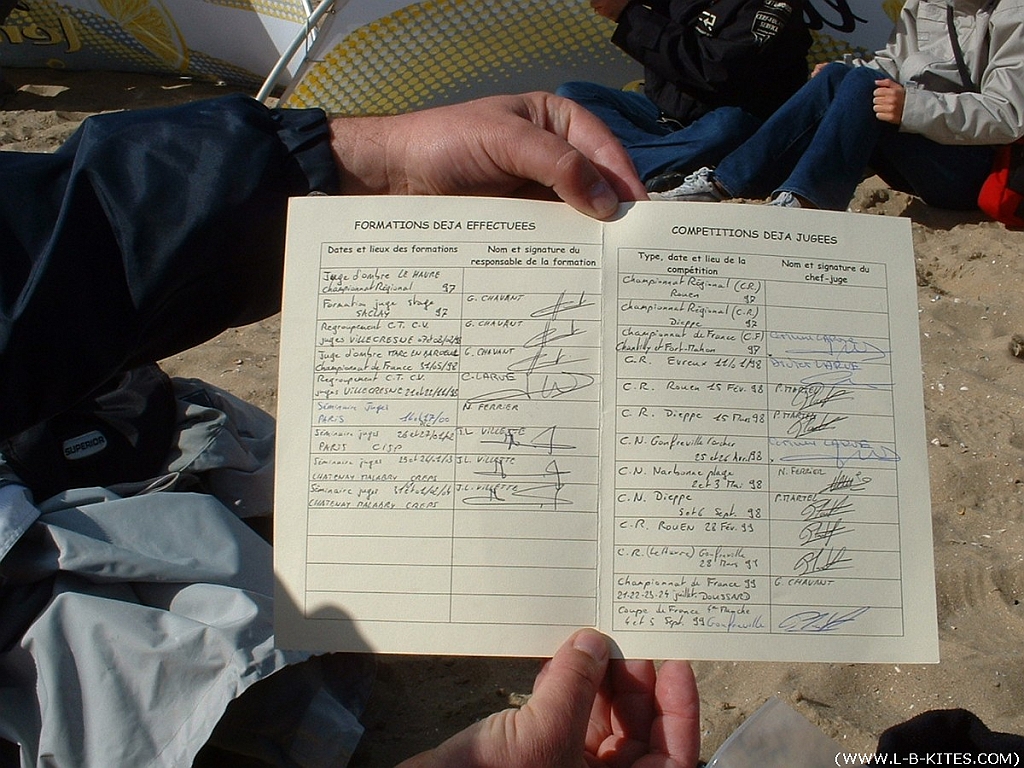 FORMATIONS DEJA EFFECTUEES
Dates et lieux des formations
Nom et signature du
responsable de la formation
Juge d'ombre LE HAVRE
Championnat Régional 97
Formation juge stage
SACLAY 97
G. CHAVANT
Regroupement C.T. C.V.
juges VILLECRESNE
G. CHAVANT
Juge d'ombre MARC EN BAROEUL
Championnat de France 31/05/98
G. CHAVANT
Regroupement C.T. C.V.
juges VILLECRESNE 21 et 22/11/98
C. LARUE
Séminaire Juges
PARIS
N. FERRIER
Séminaire juges 26 et 27/01/02
PARIS CISP
J.L. VILLETTE
Séminaire juges 25 et 26/1/3
CHATENAY MALABRY CREPS
J.L. VILLETTE
Séminaire juges
CHATENAY MALABRY CREPS
J.L. VILLETTE
COMPETITIONS DEJA JUGEES
Type, date et lieu de la
compétition
Nom et signature du
chef-juge
Championnat Régional (C.R.)
Rouen 97
Championnat Régional (C.R.)
Dieppe 97
Championnat de France (C.F)
Chantilly et Fort-Mahon 97
LARUE
C.R. Evreux 11/1/98
LARUE
C.R. Rouen 15 Fév. 98
P. MARTEL
C.R. Dieppe 15 Mars 98
P. MARTEL
C.N. Gonfreville l'orcher
25 et 26 Avr. 98
LARUE
C.N. Narbonne plage
2 et 3 Mai 98
N. FERRIER
C.N. Dieppe
5 et 6 Sept. 98
P. MARTEL
C.R. ROUEN 28 Fév. 99
C.R. (Le Havre) Gonfreville
28 Mars 99
Championnat de France 99
21-22-23-24 juillet. DOUSSARD
G. CHAVANT
Coupe de France 1ère Manche
4 et 5 Sept. 99 Gonfreville
SUPERIOR
(WWW.L-B-KITES.COM)